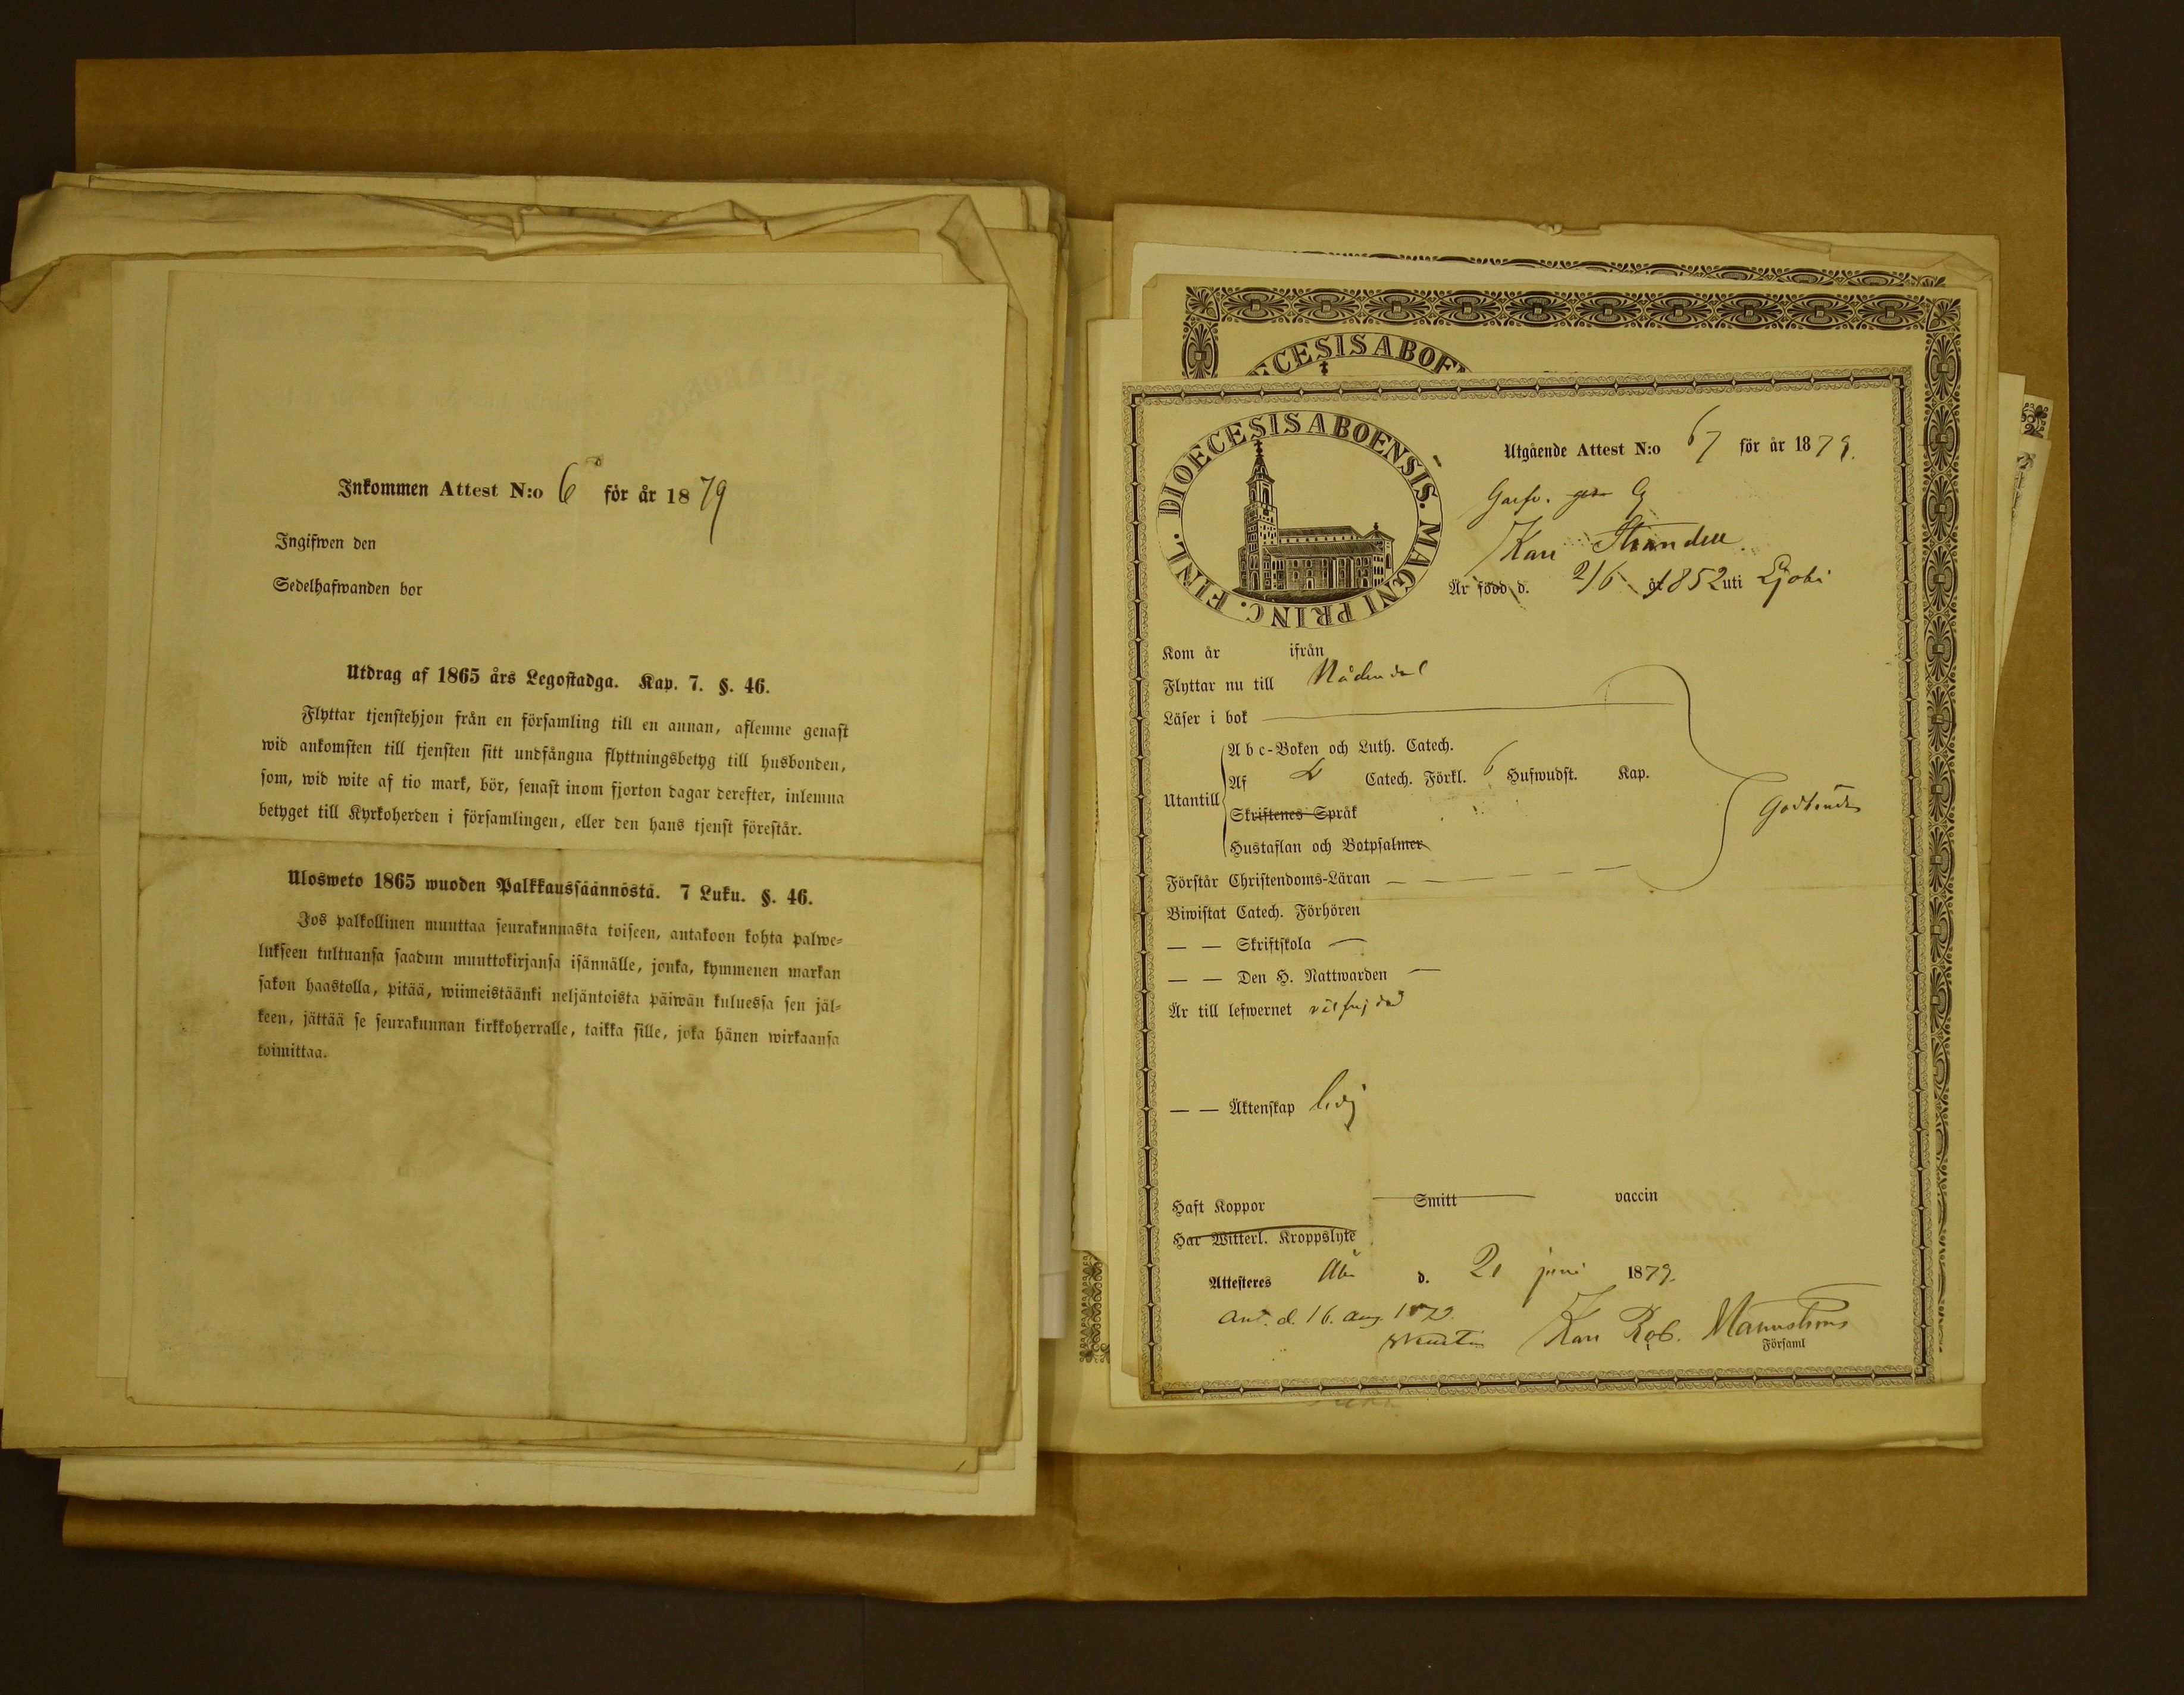 Inkommen Attest N:o 6 för år 1879
Ingifwen den
Sedelhafwanden bor
Utdrag af 1865 års Legostadga. Kap. 7. §. 46.
Flyttar tjenstehjon från en församling till en annan, aflemne genast
wid ankomsten till tjensten sitt undfångna flyttningsbetyg till husbonden,
som, wid wite af tio mark, bör, senast inom fjorton dagar derefter, inlemna
betyget till Kyrkoherden i församlingen, eller den hans tjenst förestår.
Ulosweto 1865 wuoden Palkkaussäännöstä. 7 Luku. §. 46.
Jos palkollinen muuttaa seurakunnasta toiseen, antakoon kohta palwe=
lukseen tultuansa saadun muuttokirjansa isännälle, jonka, kymmenen markan
sakon haastolla, pitää, wiimeistäänki neljäntoista päiwän kuluessa sen jäl=
keen, jättää se seurakunnan kirkkoherralle, taikka sille, joka hänen wirkaansa
toimittaa.
ECESIS ABOE
DIOECESIS ABOENSIS. MAGNI PRINC. FINL.
Utgående Attest N:o 67 för år 1879.
Garfv. G
Karl Strandell.
Är född d. 2/6 1852 uti
Kom år ifrån
Flyttar nu till Nådendal
Läser i bok
Utantill
A b c-Boken och Luth. Catech.
Af L Catech. Förkl. 6 Hufwudst. Kap.
Skriftenes Språk
Hustaflan och Botpsalmer
Godkända
Förstår Christendoms-Läran
Biwistat Catech. Förhören
— — Skriftskola —
— — Den H. Nattwarden —
Är till lefwernet välfrejdad
— — Äktenskap ledig
Haft Koppor Smitt vaccin
Har Witterl. Kroppslyte
Attesteres Åbo d. 21 juni 1879.
Ant. d. 16. aug.
Karl Rob. Mannström
Församl